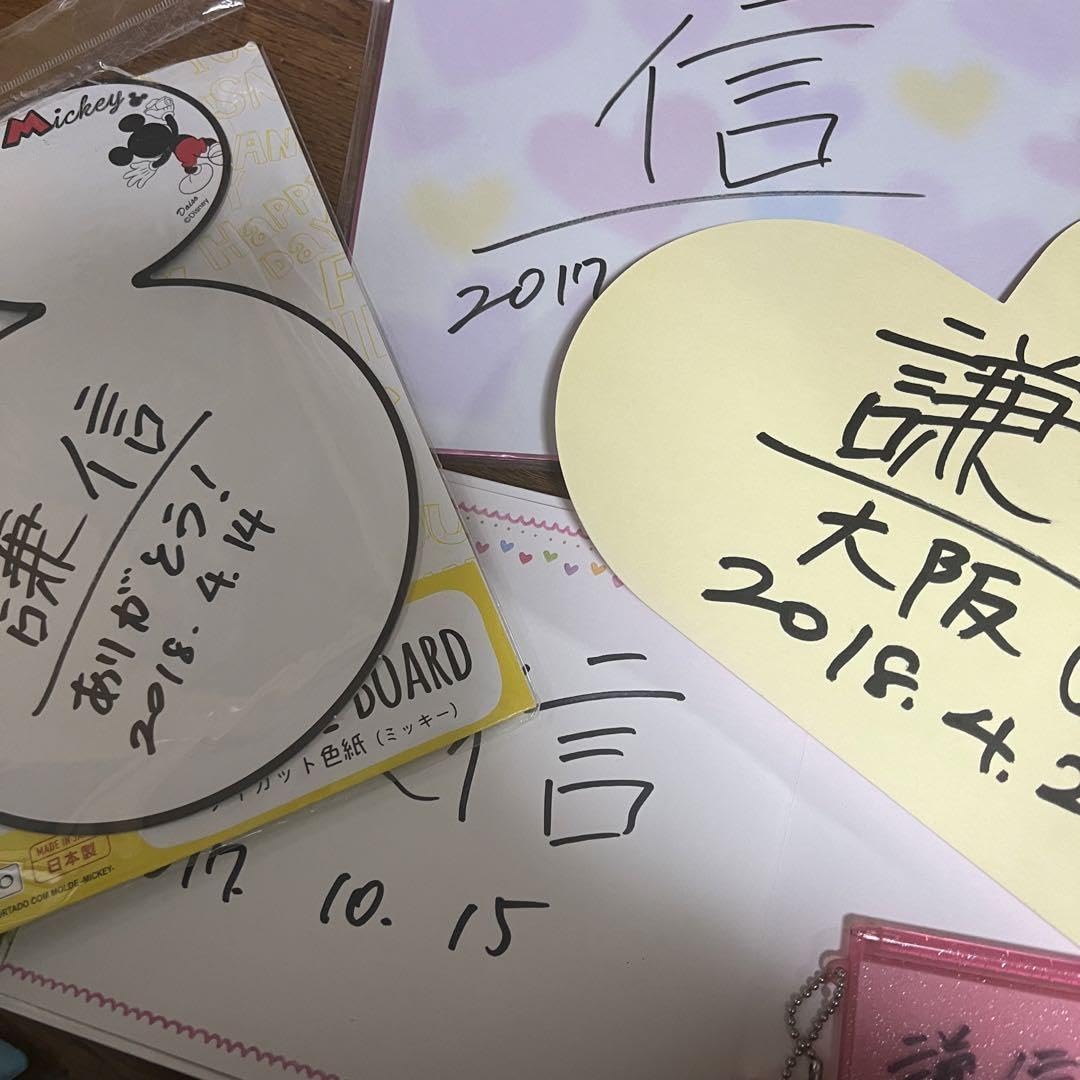 Mickey
Daiso
©Disney
HAPPY
DAY
謙信
ありがとう!
2018.4.14
BOARD
カット色紙(ミッキー)
MADE IN JA
日本製
RTADO COM MOLDE -MICKEY-
信
2017
謙
大阪
2018.4.2
信
17. 10. 15
謙信